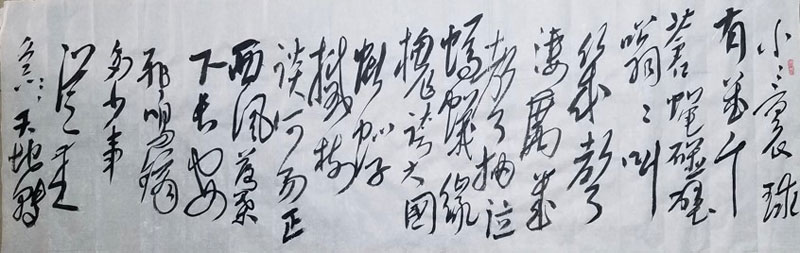 小小寰球
有几个
蒼蠅碰壁
嗡嗡叫
几聲
凄厲几
聲抽泣
螞蟻緣
槐誇大國
蚍蜉
撼樹
談何易正
西風落葉
下长安
飛鳴鏑
多少事
從來
急天地轉